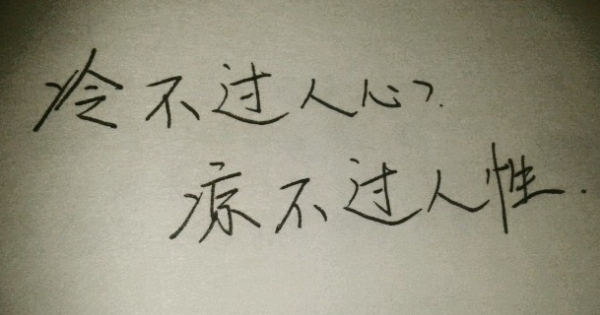 冷不过人心?.
凉不过人性.